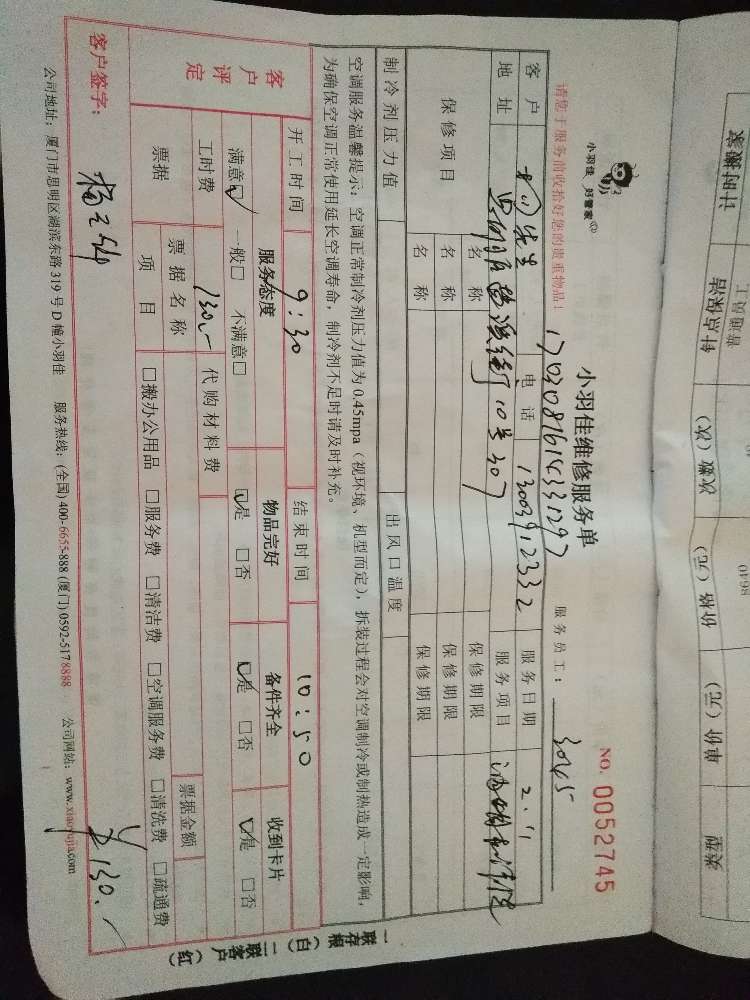 小羽佳 好管家
小羽佳维修服务单
NO. 0052745
请您于服务前收拾好您的贵重物品！
服务员工： 3045
客户 先生 电话 13003912332 服务日期 2.11
地址 10号307 服务项目
保修项目 名称 保修期限
名称 保修期限
名称 保修期限
制冷剂压力值 出风口温度
空调服务温馨提示：空调正常制冷剂压力值为0.45mpa（视环境、机型而定），拆装过程会对空调制冷或制热造成一定影响，
为确保空调正常使用延长空调寿命，制冷剂不足时请及时补充。
开工时间 9:30 结束时间 10:50
客户评定 服务态度 物品完好 备件齐全 收到卡片
满意☑ 一般□ 不满意□ ☑是 □否 ☑是 □否 ☑是 □否
工时费 130.- 代购材料费
票据 票据名称 票据金额
项目 □搬办公用品 □服务费 □清洁费 □空调服务费 □清洗费 □疏通费
客户签字： ¥130.-
公司地址：厦门市思明区湖滨东路319号D幢小羽佳 服务热线：(全国)400-6655-888 (厦门)0592-5178888 公司网站：www.xiaoyujia.com
一联存根（白） 二联客户（红）
计时搬家
普通员工
针点保洁
次数（次）
价格（元）
单价（元）